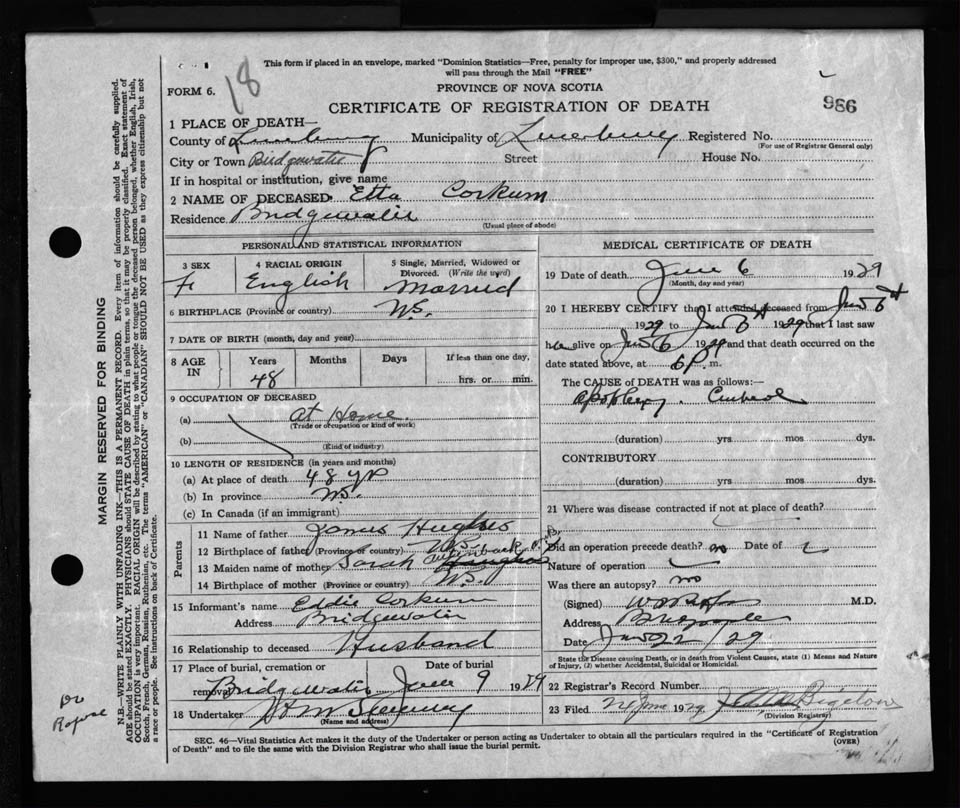 This form if placed in an envelope, marked "Dominion Statistics—Free, penalty for improper use, $300," and properly addressed
will pass through the Mail "FREE"
FORM 6.
18
PROVINCE OF NOVA SCOTIA
CERTIFICATE OF REGISTRATION OF DEATH
986
1 PLACE OF DEATH—
County of Lunenburg Municipality of Lunenburg Registered No.
(For use of Registrar General only)
City or Town Bridgewater Street House No.
If in hospital or institution, give name
2 NAME OF DECEASED Etta Corkum
Residence Bridgewater
(Usual place of abode)
MARGIN RESERVED FOR BINDING
N.B.—WRITE PLAINLY WITH UNFADING INK—THIS IS A PERMANENT RECORD. Every item of information should be carefully supplied.
AGE should be stated EXACTLY. PHYSICIANS should STATE CAUSE OF DEATH in plain terms, so that it may be properly classified. Exact statement of
OCCUPATION is very important. RACIAL ORIGIN will be described by stating to what people or tongue the deceased person belonged, whether English, Irish,
Scotch, French, German, Russian, Ruthenian, etc. The terms "AMERICAN" or "CANADIAN" SHOULD NOT BE USED as they express citizenship but not
a race or people. See instructions on back of Certificate.
PERSONAL AND STATISTICAL INFORMATION
3 SEX
F
4 RACIAL ORIGIN
English
5 Single, Married, Widowed or
Divorced. (Write the word)
Married
6 BIRTHPLACE (Province or country) N.S.
7 DATE OF BIRTH (month, day and year)
8 AGE IN
Years Months Days If less than one day,
48 hrs. or min.
9 OCCUPATION OF DECEASED
(a) At Home
(Trade or occupation or kind of work)
(b)
(Kind of industry)
10 LENGTH OF RESIDENCE (in years and months)
(a) At place of death 48 yr
(b) In province N.S.
(c) In Canada (if an immigrant)
Parents
11 Name of father James Hughes
12 Birthplace of father (Province or country) N.S.
13 Maiden name of mother Sarah
14 Birthplace of mother (Province or country) N.S.
15 Informant's name Eddie Corkum
Address Bridgewater
16 Relationship to deceased Husband
17 Place of burial, cremation or Date of burial
removal Bridgewater June 9 1929
18 Undertaker
(Name and address)
MEDICAL CERTIFICATE OF DEATH
19 Date of death June 6 1929
(Month, day and year)
20 I HEREBY CERTIFY that I attended deceased from June
1929 to June 1929 that I last saw
her alive on June 6 1929 and that death occurred on the
date stated above, at 6 P.m.
The CAUSE OF DEATH was as follows:—
Apoplexy. Cerebral
(duration) yrs mos dys.
CONTRIBUTORY
(duration) yrs mos dys.
21 Where was disease contracted if not at place of death?
Did an operation precede death? no Date of
Nature of operation
Was there an autopsy? no
(Signed) M.D.
Address
Date June 22/29
State the Disease causing Death, or in death from Violent Causes, state (1) Means and Nature
of Injury, (2) whether Accidental, Suicidal or Homicidal.
22 Registrar's Record Number
23 Filed 24 June 1929 Bigelow
(Division Registrar)
SEC. 46—Vital Statistics Act makes it the duty of the Undertaker or person acting as Undertaker to obtain all the particulars required in the "Certificate of Registration
of Death" and to file the same with the Division Registrar who shall issue the burial permit.
(OVER)